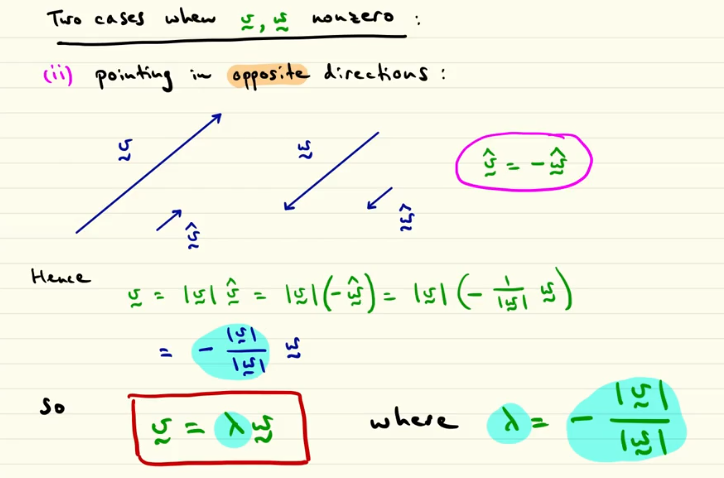 Two cases when v, w nonzero :
(ii) pointing in opposite directions :
v w v̂ = - ŵ
v̂ ŵ
Hence
v = |v| v̂ = |v| (- ŵ) = |v| (- 1/|w| w)
= - |v|/|w| w
So v = λ w where λ = - |v|/|w|